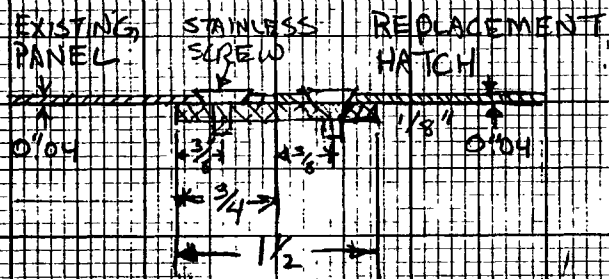 EXISTING
PANEL
STAINLESS
SCREW
REPLACEMENT
HATCH
0"04
1/8"
0"04
3/8
3/8
3/4
1 1/2